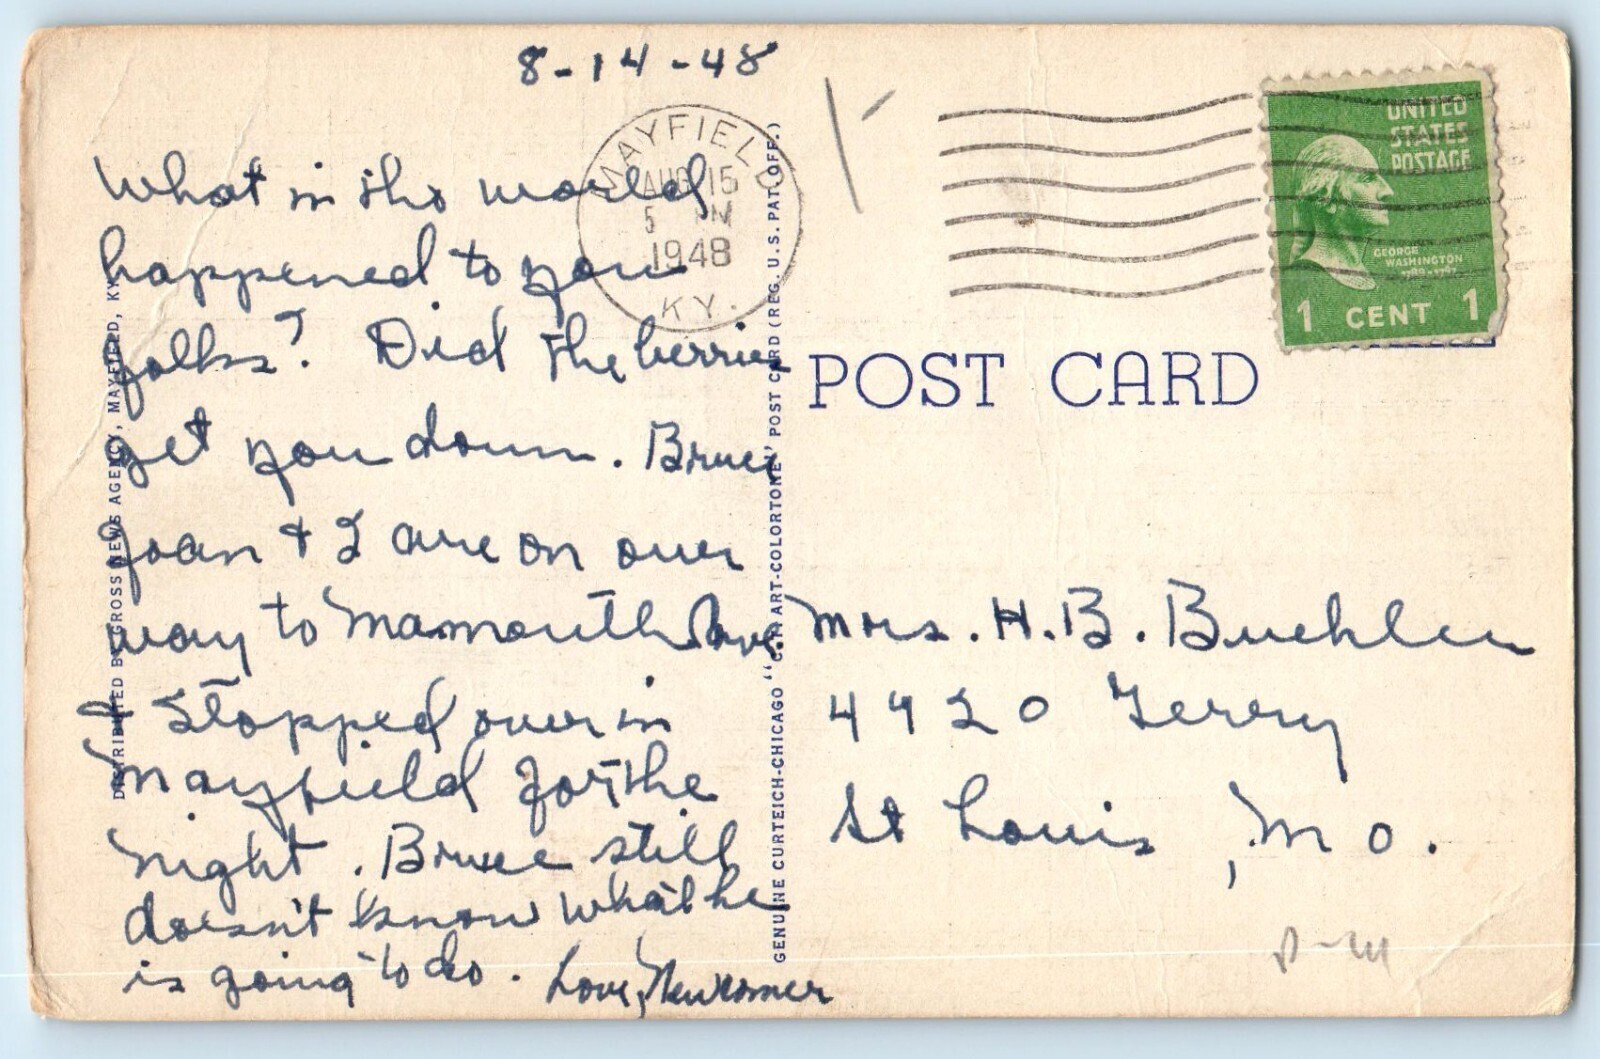 8-14-48
What in the world
happened to you
folks? Did the berries
get you down. Bruce
Joan + I are on our
way to Mamouth Cave
& stopped over in
Mayfield for the
night. Bruce still
doesn't know what he
is going to do. Love, Newcomer
MAYFIELD
AUG 15
5 PM
1948
KY.
UNITED
STATES
POSTAGE
GEORGE
WASHINGTON
1789-1797
1 CENT 1
POST CARD
Mrs. H. B. Buehler
4920 Terry
St Louis, Mo.
DISTRIBUTED BY GROSS NEWS AGENCY, MAYFIELD, KY.
GENUINE CURTEICH-CHICAGO "C.T. ART-COLORTONE" POST CARD (REG. U.S. PAT. OFF.)